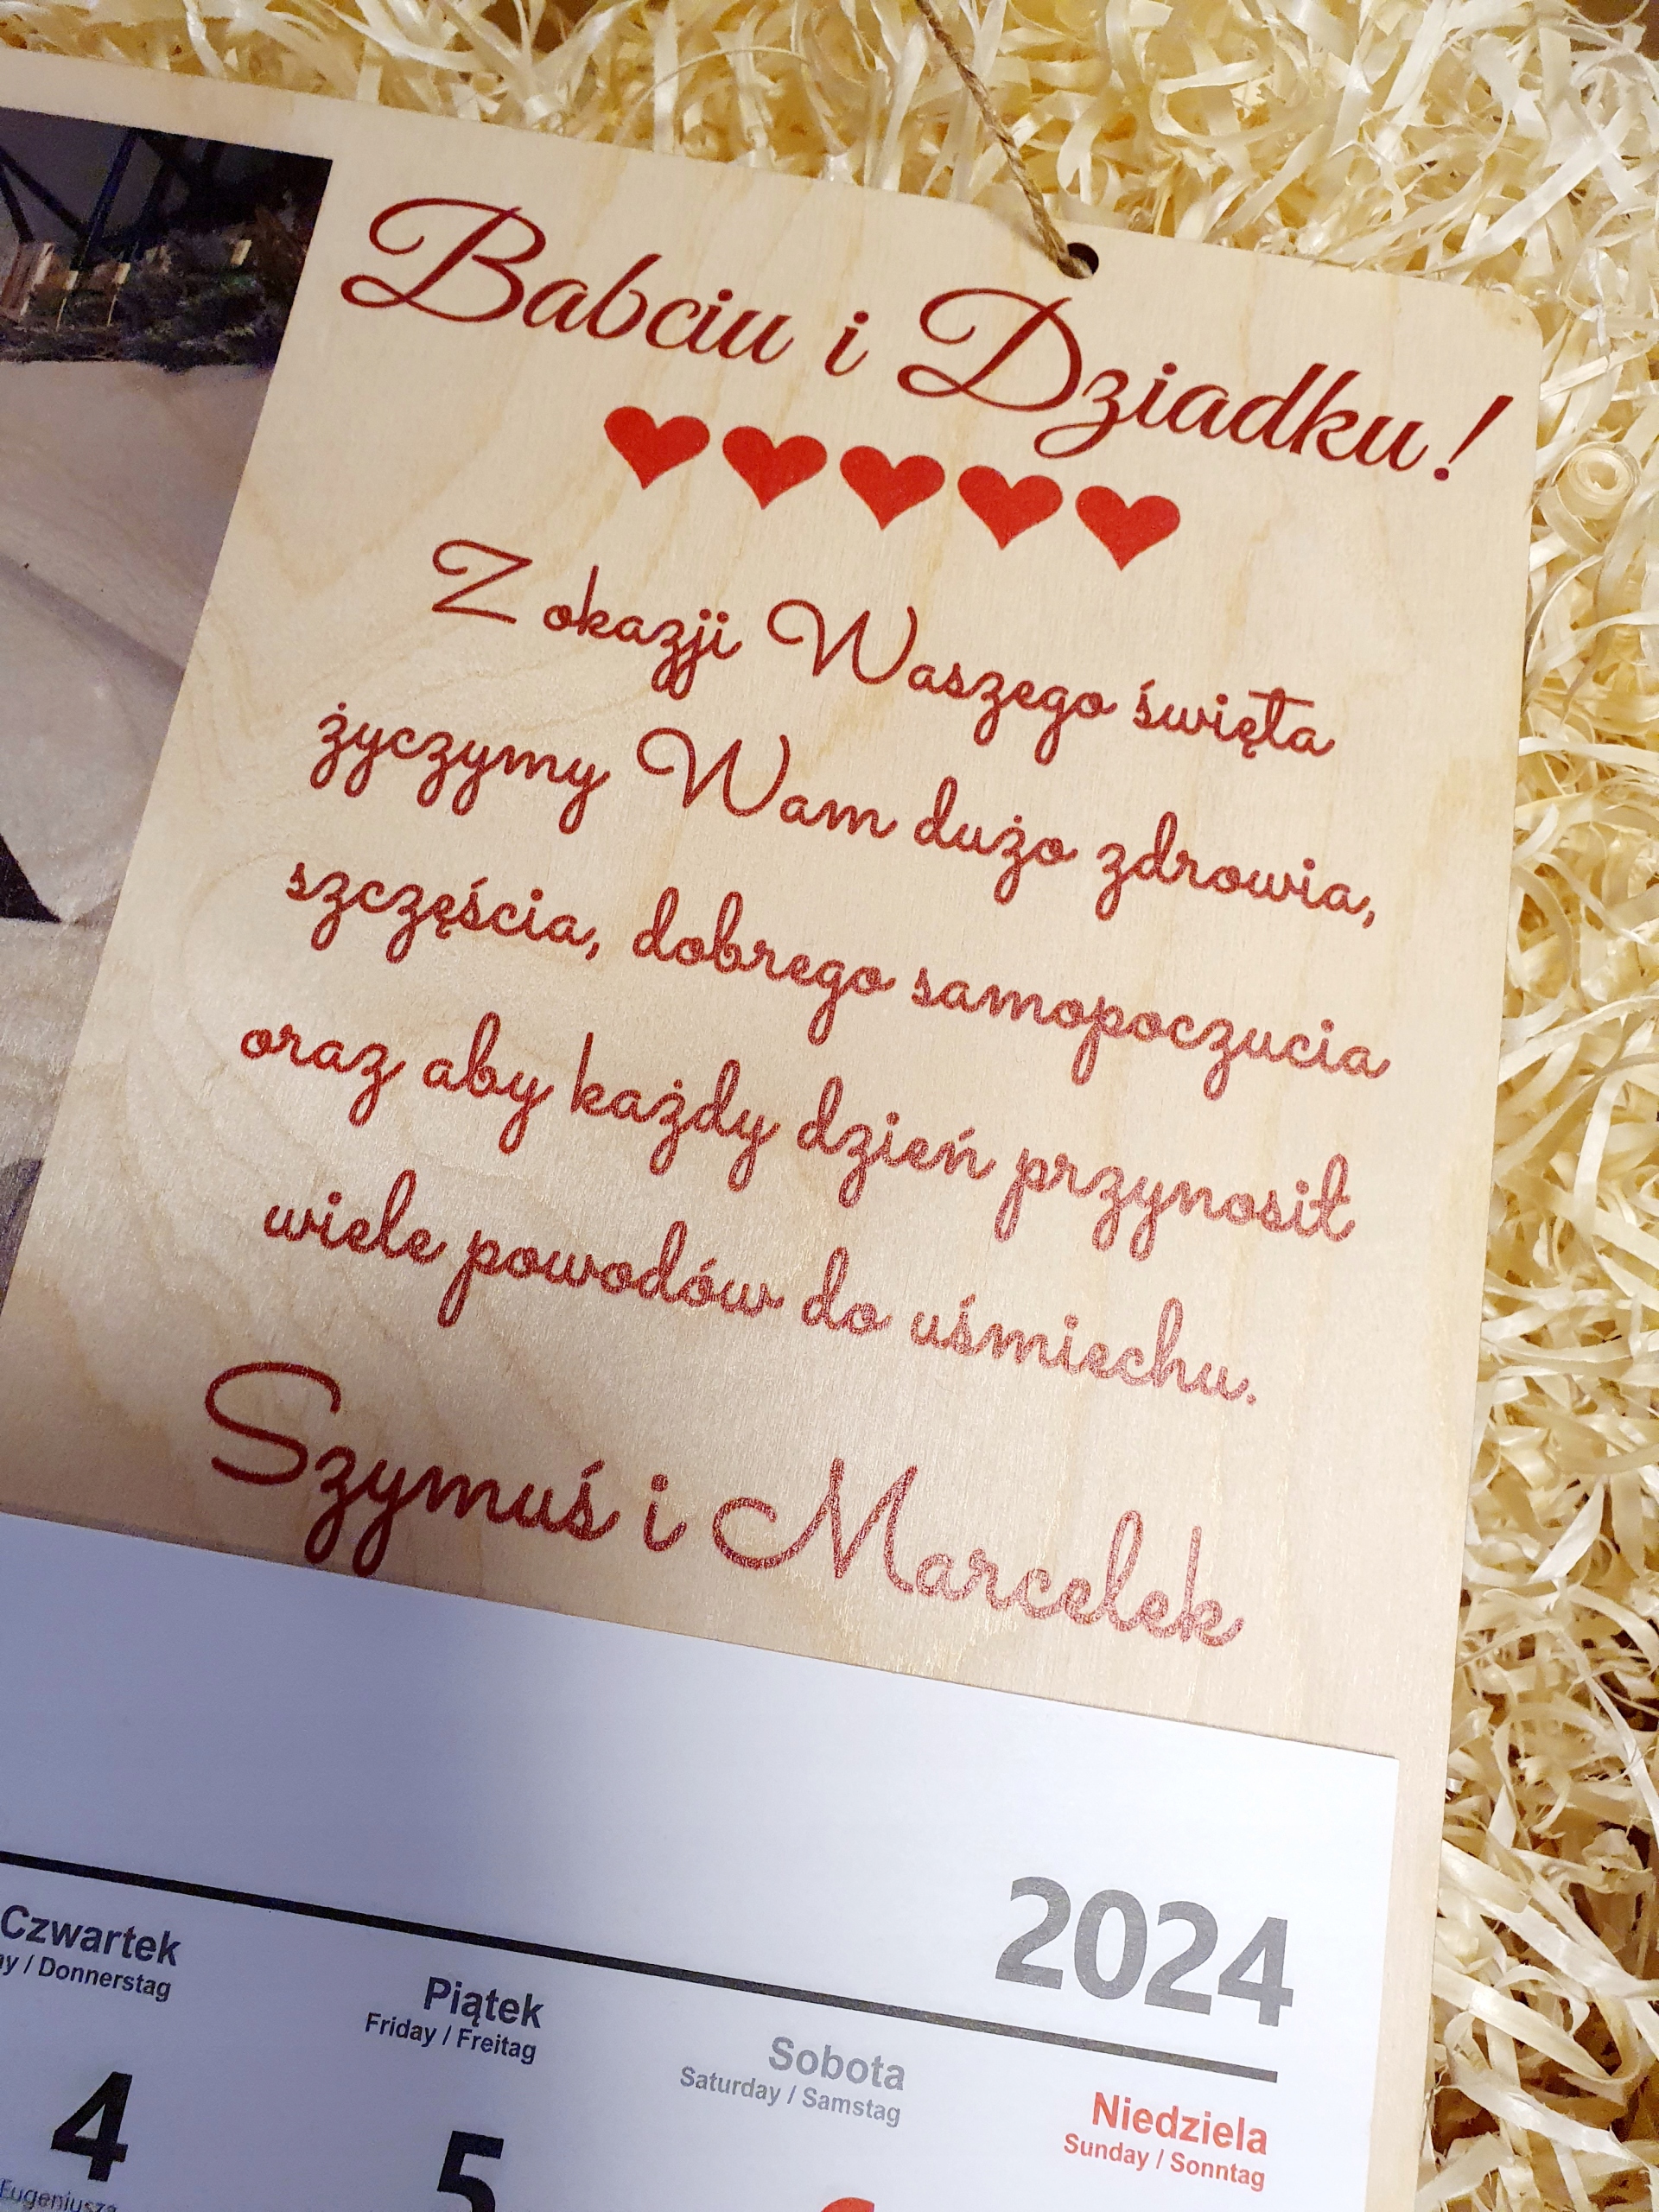 Babciu i Dziadku!
Z okazji Waszego święta
życzymy Wam dużo zdrowia,
szczęścia, dobrego samopoczucia
oraz aby każdy dzień przynosił
wiele powodów do uśmiechu.
Szymuś i Marcelek
2024
Czwartek Piątek Sobota Niedziela
/ Donnerstag Friday / Freitag Saturday / Samstag Sunday / Sonntag
4 5
Eugeniusza